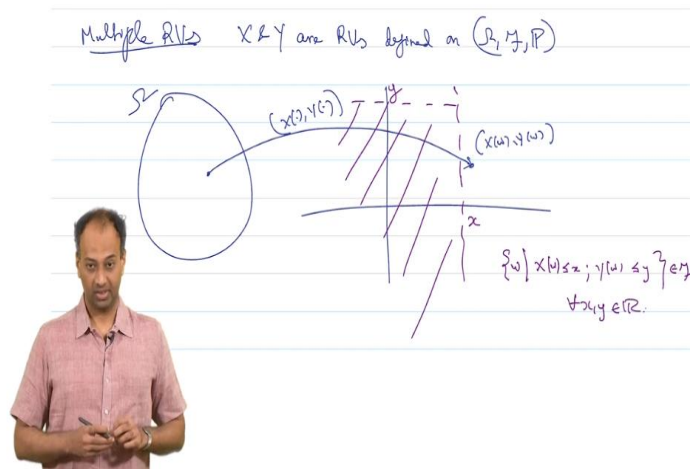 Multiple RVs X & Y are RVs defined on (Ω, ℱ, ℙ)
Ω
(X(·), Y(·))
y
(X(ω), Y(ω))
x
{ω | X(ω) ≤ x ; Y(ω) ≤ y} ∈ ℱ
∀ x, y ∈ ℝ.